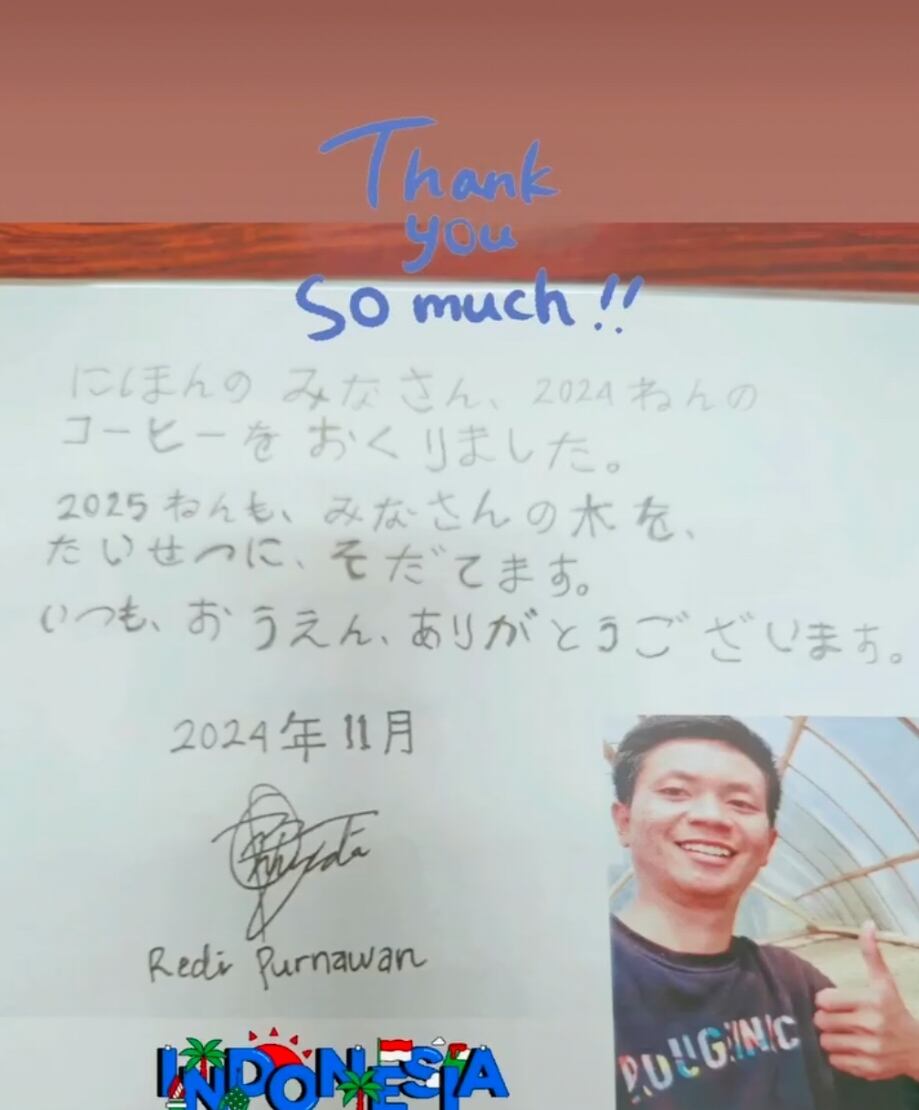 Thank
you
so much!!
にほんの みなさん、2024ねんの
コーヒーを おくりました。
2025ねんも、みなさんの木を、
たいせつに、そだてます。
いつも、おうえん、ありがとうございます。
2024年11月
Redi Purnawan
INDONESIA